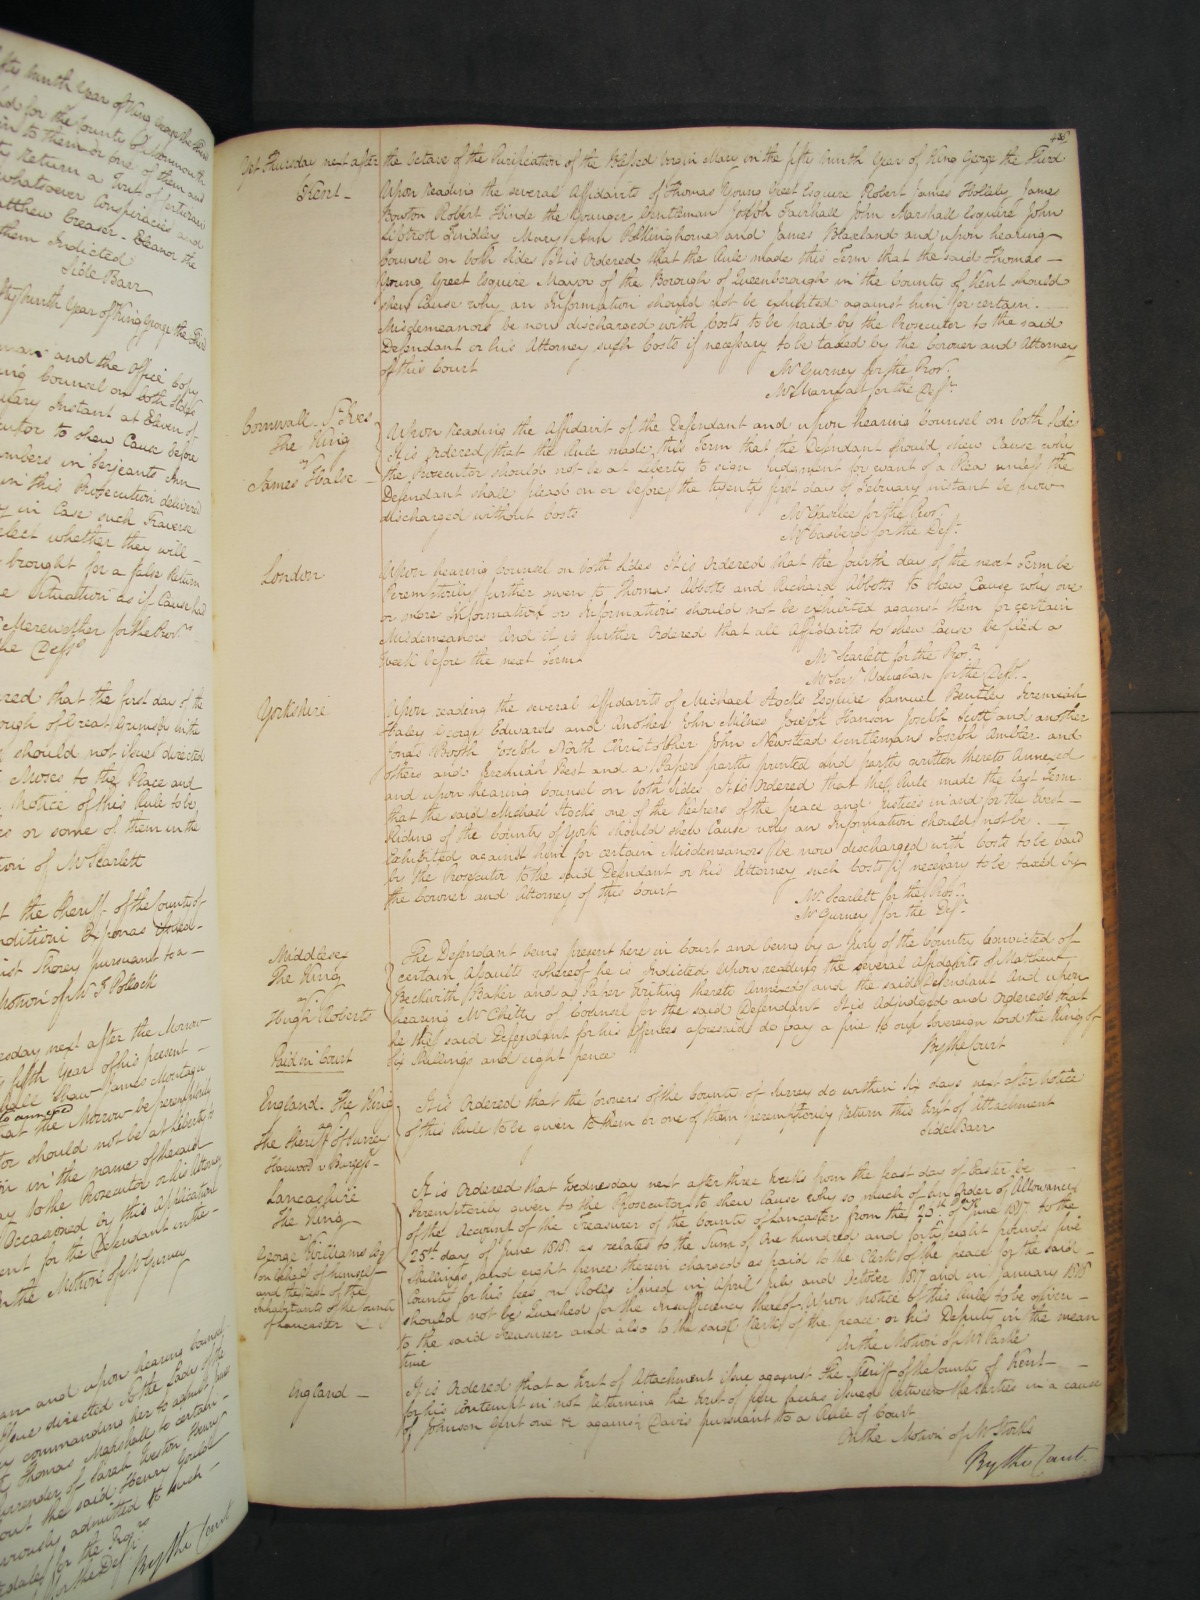 fifty ninth Year of King George the Third
for the County of Monmouth
them or one of them and
Return a Writ of Certiorari
whatsoever Conspiracies and
Matthew Creaser - Eleanor the
them Indicted
Side Barr
fifty ninth Year of King George the Third
and the Office Copy
Counsel on both Sides
Instant at Eleven of
to shew Cause before
Chambers in Serjeants Inn
in this Prosecution delivered
in Case such Traverse
elect whether they will
brought for a false Return
Situation as if Cause had
for the Pros.r
the Def.t
ordered that the first day of the
Borough of Great Grimsby in the
should not issue directed
Moses to the Place and
Notice of this Rule to be
or some of them in the
Motion of Mr Scarlett
the Sheriff of the County of
Venditioni Exponas issued
Storey pursuant to a
Motion of Mr F Pollock
next after the Morrow
fifth Year of his present
Shaw James Montagu
that the Morrow be peremptorily
should not be at Liberty to
in the name of the said
to the Prosecutor or his Attorney
Occasioned by this Application
for the Defendant in the
On the Motion of Mr Gurney
and upon hearing Counsel
directed to the Lady of the
commanding her to admit
Thomas Marshall to certain
Surrender of Sarah Weston Henry
the said Henry Gould
admitted to such
for the Pros.r
for the Def.t
By the Court
485
Yet Thursday next after the Octave of the Purification of the Blessed Virgin Mary in the fifty ninth Year of King George the Third
Kent - Upon reading the several Affidavits of Thomas Young Greet Esquire Robert James Hollely James
Bowton Robert Hinde the Younger Gentleman Joseph Fairhall John Marshall Esquire John
Liptrott Findley Mary Ann Polkinghorne and James Blaxland and upon hearing
Counsel on both sides It is Ordered that the Rule made this Term that the said Thomas
Young Greet Esquire Mayor of the Borough of Queenborough in the County of Kent should
shew Cause why an Information should not be exhibited against him for certain
Misdemeanors be now discharged with Costs to be paid by the Prosecutor to the said
Defendant or his Attorney such Costs if necessary to be taxed by the Coroner and Attorney
of this Court
Mr Gurney for the Pros.r
Mr Marryat for the Def.t
Cornwall. St Ives
The King
v
James Halse
Upon Reading the Affidavit of the Defendant and upon hearing Counsel on both Sides
It is Ordered that the Rule made this Term that the Defendant should shew Cause why
the Prosecutor should not be at Liberty to sign Judgment for want of a Plea unless the
Defendant shall plead on or before the twenty first day of February instant be now
discharged without Costs
Mr Caselee for the Pros.r
Mr Casberd for the Def.t
London
Upon hearing Counsel on both Sides It is Ordered that the fourth day of the next Term be
Peremptorily further given to Thomas Abbotts and Richard Abbotts to shew Cause why one
or more Information or Informations should not be exhibited against them for certain
Misdemeanors And it is further Ordered that all Affidavits to shew Cause be filed a
Week before the next Term
Mr Scarlett for the Pros.r
Mr Serj.t Vaughan for the Def.ts
Yorkshire
Upon reading the several Affidavits of Michael Stocks Esquire Samuel Bentley Jeremiah
Haley George Edwards and Another John Milnes Joseph Hanson Joseph Scott and another
Jonas Booth Joseph North Christopher John Newstead Gentleman Joseph Ambler and
others and Jeremiah Best and a Paper partly printed and partly written thereto Annexed
and upon hearing Counsel on both Sides It is Ordered that the Rule made the last Term
that the said Michael Stocks one of the Keepers of the peace and Justices in and for the West
Riding of the County of York should shew Cause why an Information should not be
Exhibited against him for certain Misdemeanors be now discharged with Costs to be paid
by the Prosecutor to the said Defendant or his Attorney such Costs if necessary to be taxed by
the Coroner and Attorney of this Court
Mr Scarlett for the Pros.r
Mr Gurney for the Def.t
Middlesex
The King
v
Hugh Roberts
Paid in Court
The Defendant being present here in Court and being by a Jury of the Country Convicted of
certain Assaults whereof he is Indicted Upon reading the several Affidavits of Matthew
Beckwith Baker and a Paper Writing thereto Annexed and the said Defendant And upon
hearing Mr Chetty of Counsel for the said Defendant It is Adjudged and Ordered that
he the said Defendant for his Offences aforesaid do pay a fine to our Sovereign Lord the King of
Six Shillings and eight pence
By the Court
England. The King
ag.t
The Sheriff of Surrey
Harwood v Burgess
It is Ordered that the Coroners of the County of Surrey do within Six days next after Notice
of this Rule to be given to them or one of them peremptorily return this Writ of Attachment
Side Barr
Lancashire
The King
v
George Williams Esq
on behalf of himself
and the rest of the
inhabitants of the County
of Lancaster
It is Ordered that Wednesday next after three Weeks from the feast day of Easter be
Peremptorily given to the Prosecutor to shew Cause why so much of an Order of Allowance
of the Account of the Treasurer of the County of Lancaster from the 25th of June 1817 to the
25th day of June 1818 as relates to the Sum of One hundred and forty eight pounds five
Shillings and eight pence therein charged as paid to the Clerk of the peace for the said
County for his fees on Rolls issued in April July and October 1817 and in January 1818
should not be Quashed for the Insufficiency thereof Upon notice of this Rule to be given
to the said Treasurer and also to the said Clerk of the peace or his Deputy in the mean
time
On the Motion of Mr Parke
England
It is Ordered that a Writ of Attachment issue against the Sheriff of the County of Kent
for his Contempt in not returning the Writ of fieri facias issued between the Parties in a Cause
of Johnson Gent one &c against Davis pursuant to a Rule of Court
On the Motion of Mr Storks
By the Court